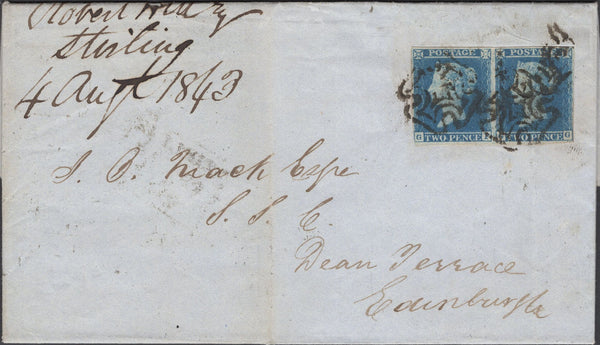 Robert Hill
Stirling
4 Augt 1843
POSTAGE POSTAGE
G TWO PENCE TWO PENCE G
J. O. Mack Esqre
S. S. C.
Dean Terrace
Edinburgh